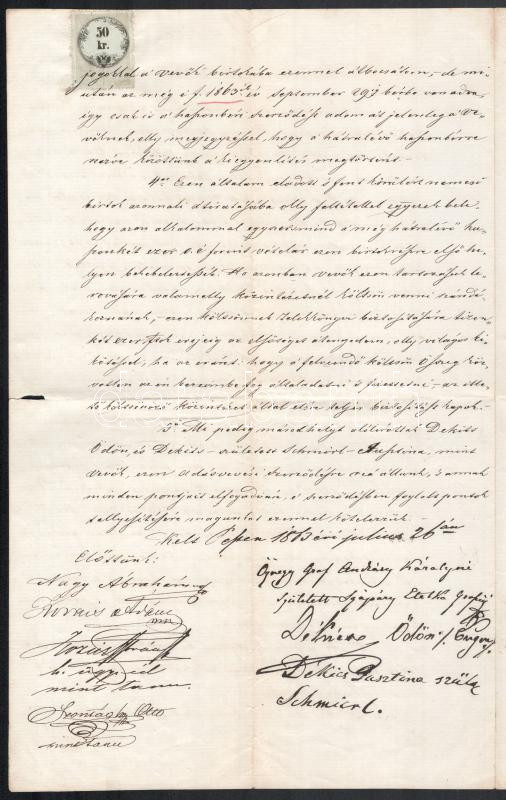 50
kr.
jogokkal a vevők birtokába ezennel átbocsátom, de mi-
után az még é f. 1863ik év September 29ig bérbe van adva,
így csak is a haszonbéri szerződést adom át jelenleg a ve-
vőknek, olly megjegyzéssel, hogy a hátralévő haszonbérre
nézve közöttünk a kiegyenlítés megtörtént.
4er Ezen általam eladott s fent körülírt nemesi
birtok azonnali átiratásába olly feltétellel egyezek bele,
hogy azon alkalommal egyszersmind a még hátralévő
ezer o.é forint vételár ezen birtokrészre első he-
lyen bekebeleztessék. Ha azonban vevők ezen tartozásuk le-
rovására valamelly közintézetnél kölcsön venni szándé-
koznának, ezen kölcsönnek telekkönyvi biztosítására tizen-
két ezer erejéig az elsőséget átengedem, olly világos ki-
kötéssel, ha az eránt, hogy a felveendő kölcsön összeg köz-
vetlen az én kezeimbe fog átaladatni s fizettetni, az ille-
tő kölcsönző közintézet által előre teljes biztosítást kapok.
5r Mi pedig másodhelyt alólírottak Dekits
Ödön, és Dekits született Schmirl Jusztina, mint
vevők, ezen adásvevési szerződésre reá állunk, s annak
minden pontjait elfogadván, a szerződésben foglalt pontok
teljesítésére magunkat ezennel kötelezzük.
Kelt Pesten 1863 évi julius 26án
Előttünk:
Nagy Abrahám
Kovács Ádám
mint tanu.
Szontágh Otto
mint tanu
György Gróf Andrásy Károlyné
született Szápáry Etelka Grófnő
Ödön
Dékics Jusztina szül.
Schmirl.